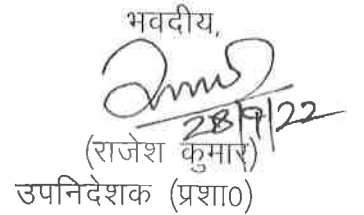 भवदीय,
28/9/22
(राजेश कुमार)
उपनिदेशक (प्रशा0)